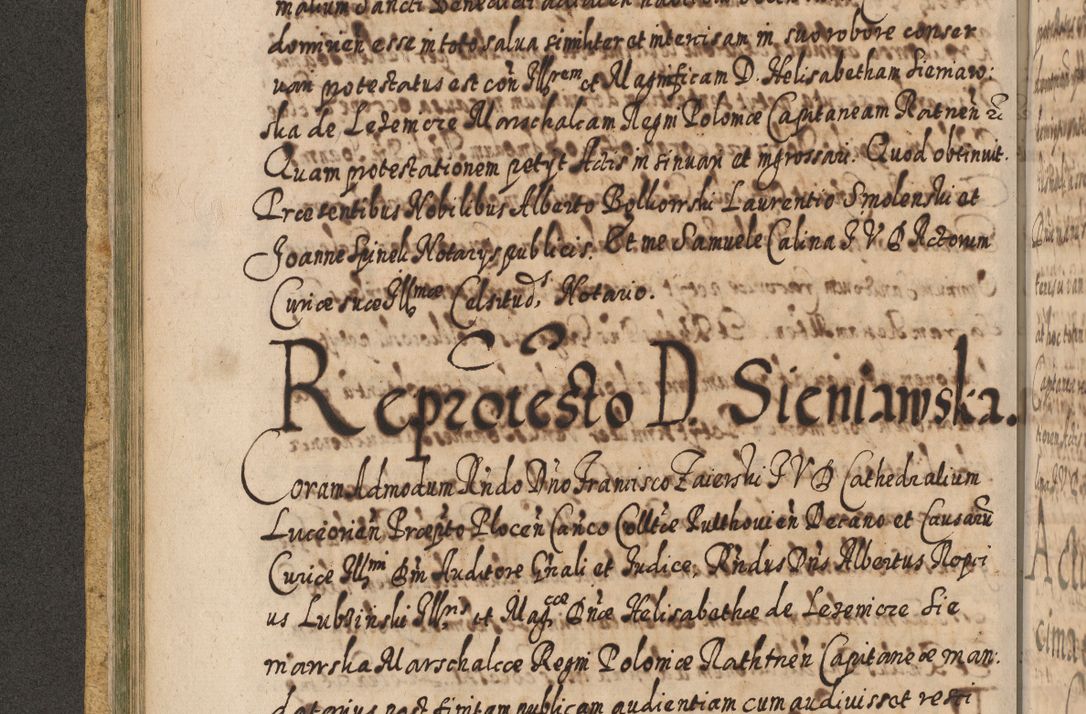 malium Sancti Benedicti
dominen esse in toto salua similiter et intenisam in suo robore conser
uari protestatus est con Illrem et Magnificam D. Helisabetham Sieniaw:
ska de Lezenicze Marschalcam Regni Poloniæ Capitaneam Ratnen &c
Quam protestationem petyt Actis insinuari et ingrossari. Quod obtinuit.
Præsentibus Nobilibus Alberto Bolkowski Laurentio Smolenski et
Joanne Spineli Notarys publicis. Et me Samuele Calina J V D Actorum
Curiæ suæ Illmæ Celsituds Notario.
Reprotesto D. Sieniawska.
Coram Admodum Rndo Dno Francisco Zaierski J V D Cathedralium
Luceorien Præpto Plocen Canco Colltæ Pulthouien Decano et Causaru
Curiæ Illmi Dni Auditore Gnali et Judice, Rndus Dns Albertus Ropi
us Lubzinski Illris et Magcæ Dnæ Helisabethæ de Lezenicze Sie
niawska Marschalcæ Regni Poloniæ Rathnen Capitaneæ man:
datarius post finitam publicam audientiam cum audiuisset resti